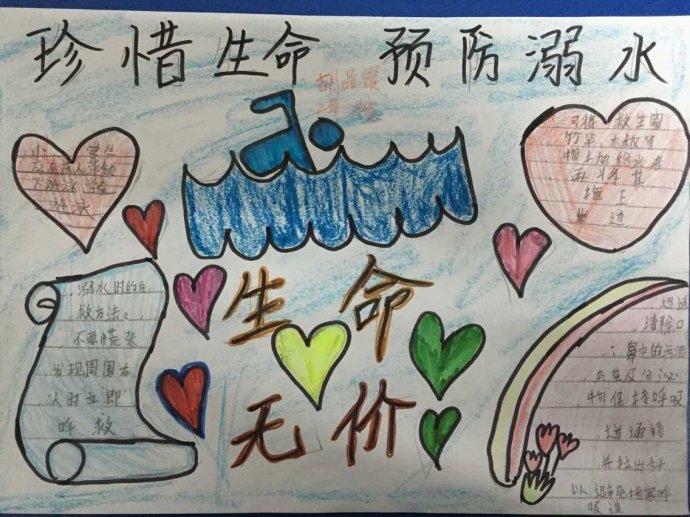 珍惜生命 预防溺水
小学生
应在成人带领
下游泳
可将救生圈
竹竿木板等
物上抛给水者
再将其
拖上
岸边
生命
无价
溺水时的自
救方法:
不要慌张
发现周围本
人时立即
呼救
迅速
清除口
、鼻中的污泥
杂草及分泌
物保持呼吸
道通畅
并拉出舌头
以避免堵塞呼
吸道